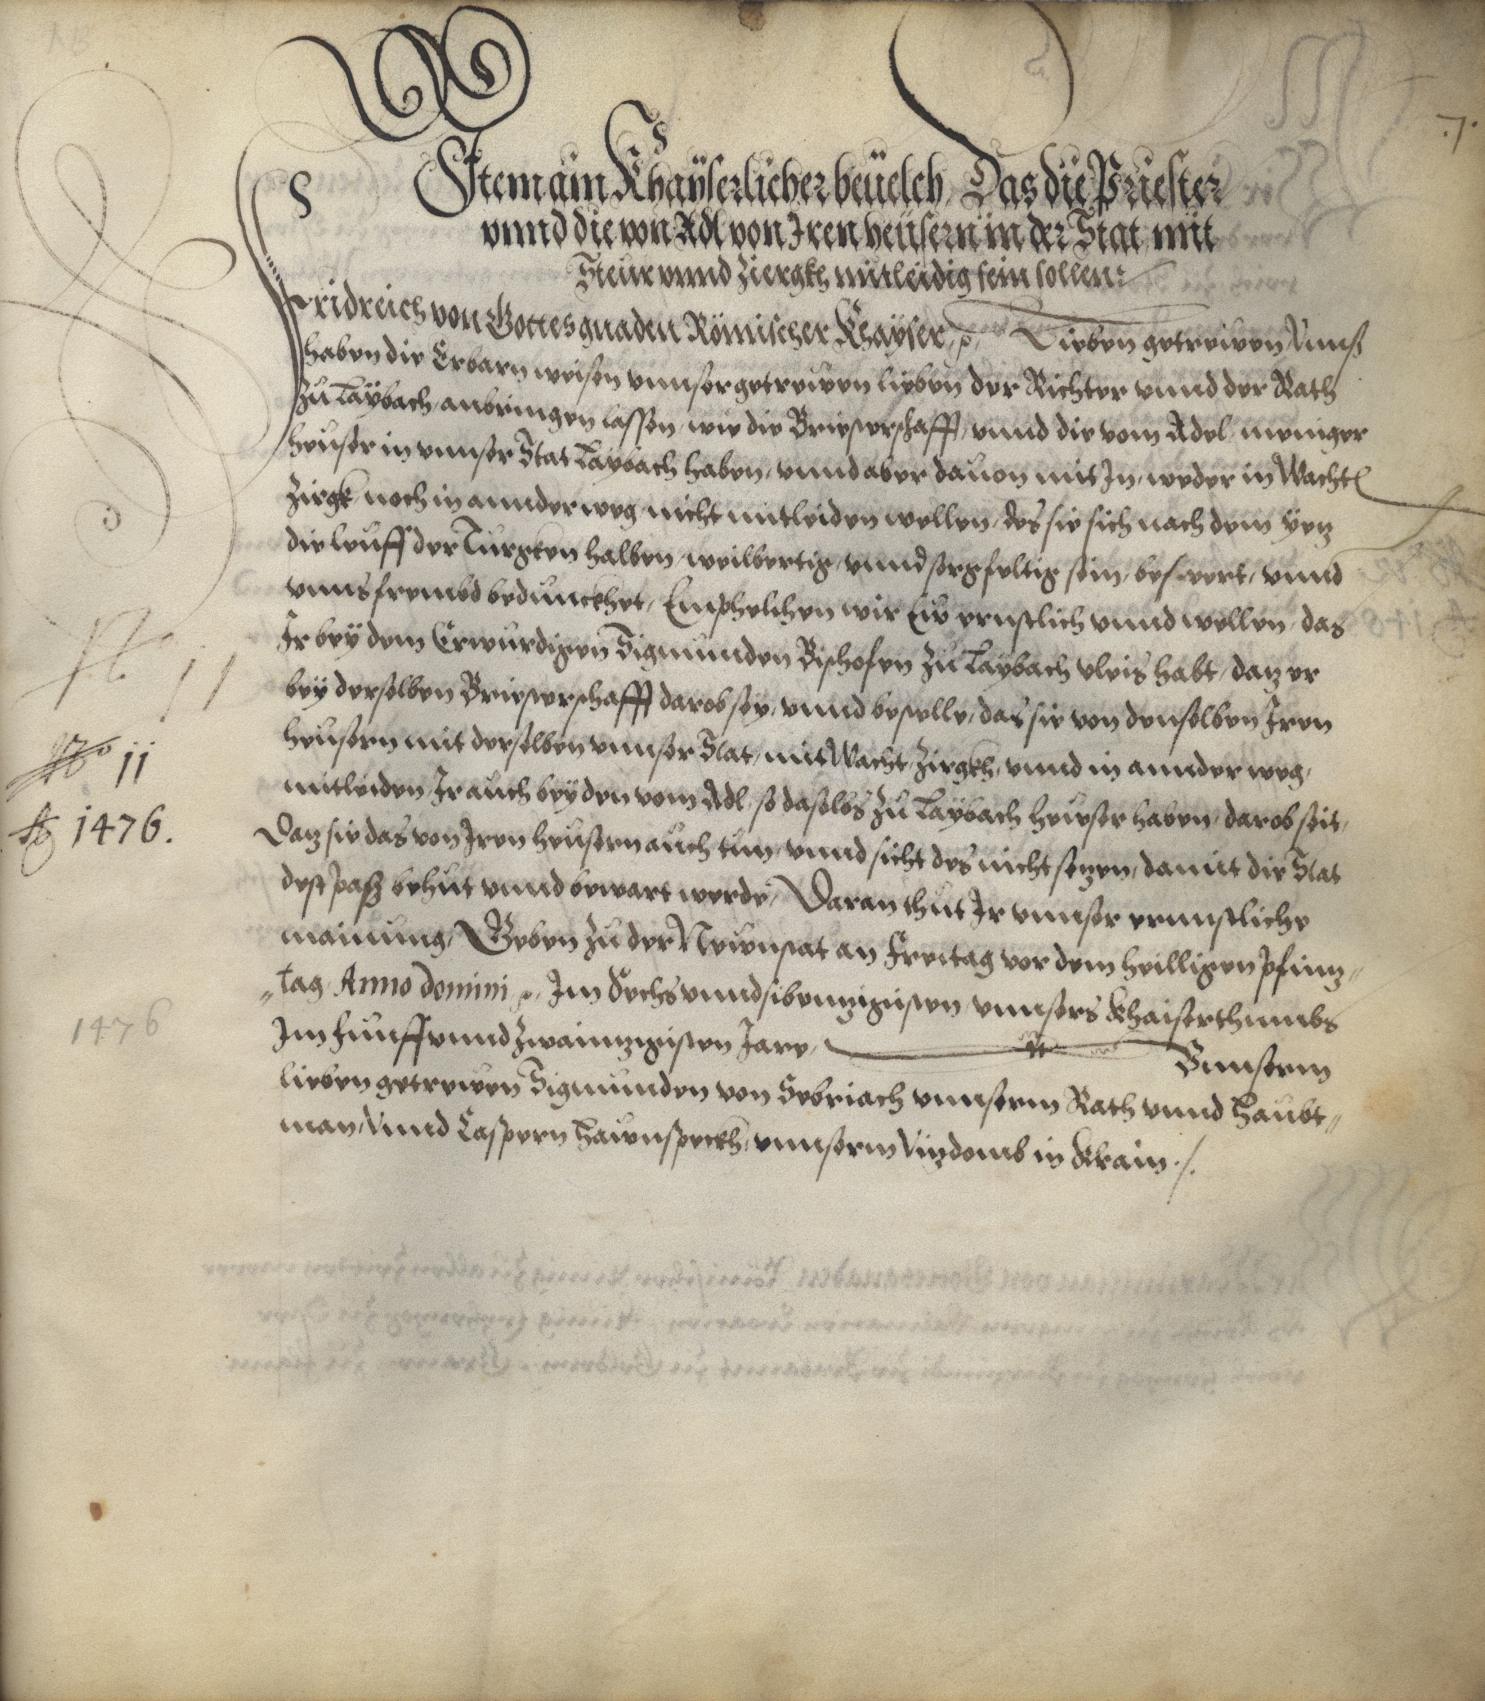 .7.
Item ain Khaÿserlicher beuelch, Das die Priester
vnnd die von Adl von Iren heüsern in der Stat mit
Steur vnnd Ziergkh mitleidig sein sollen:
Fridreich von Gottes gnaden Römischer Khaÿser, Lieben getreuen Vnnß
haben die Erbarn weisen vnnser getreuen lieben der Richter vnnd der Rath
zu Laÿbach anbringen lassen, wie die Briesterschafft, vnnd die vom Adel meniger
heuser in vnnser Stat Laÿbach haben, vnnd aber dauon mit In, weder in Wacht
Zirgk noch in annder weg nicht mitleiden wellen, des sie sich nach dem yetz
die leuff der Türgken halben, vnnd sorgfeltig sein, beswert, vnnd
vnns frembd bedunckhet, Emphelchen wir Eu ernstlich vnnd wellen, das
Ir beÿ dem Erwurdigen Sigmunden Bischofen zu Laÿbach vleis habt, datz er
beÿ derselben Briesterschafft darob seÿ, vnnd bestelle, das sie von denselben Iren
heusern mit derselben vnnser Stat, mit Wacht, Zirgkh, vnnd in annder weg,
No 11
mitleiden, Ir auch beÿ den vom Adl, so daselbs zu Laÿbach heuser haben, darob seit,
1476.
Datz sie das von Iren heusern auch tun, vnnd sich des nicht setzen, damit die Stat
dest paß behut vnnd bewart werde, Daran thut Ir vnnser ernnstliche
mainung, Geben zu der Neuenstat an Freitag vor dem heilligen pfinng
tag Anno domini Im Sechs vnnd sibenntzigisten, vnnsers Khaiserthumbs
1476
Im funff vnnd zwainntzigisten Jare, Vnnserm
lieben getreuen Sigmunden von Sebriach vnnserm Rath vnnd haubt
man, Vnnd Caspern vnnserm Vitzdomb in Krain ./.